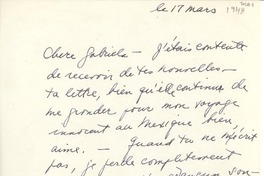 le 17 mars
Chere Gabriela — J'étais contente
de recevoir de tes nouvelles —
ta lettre, bien qu'elle continue de
me gronder pour mon voyage
innocent au Mexique bien
aimé. — Quand tu ne m'écrit
pas, je perde complètement